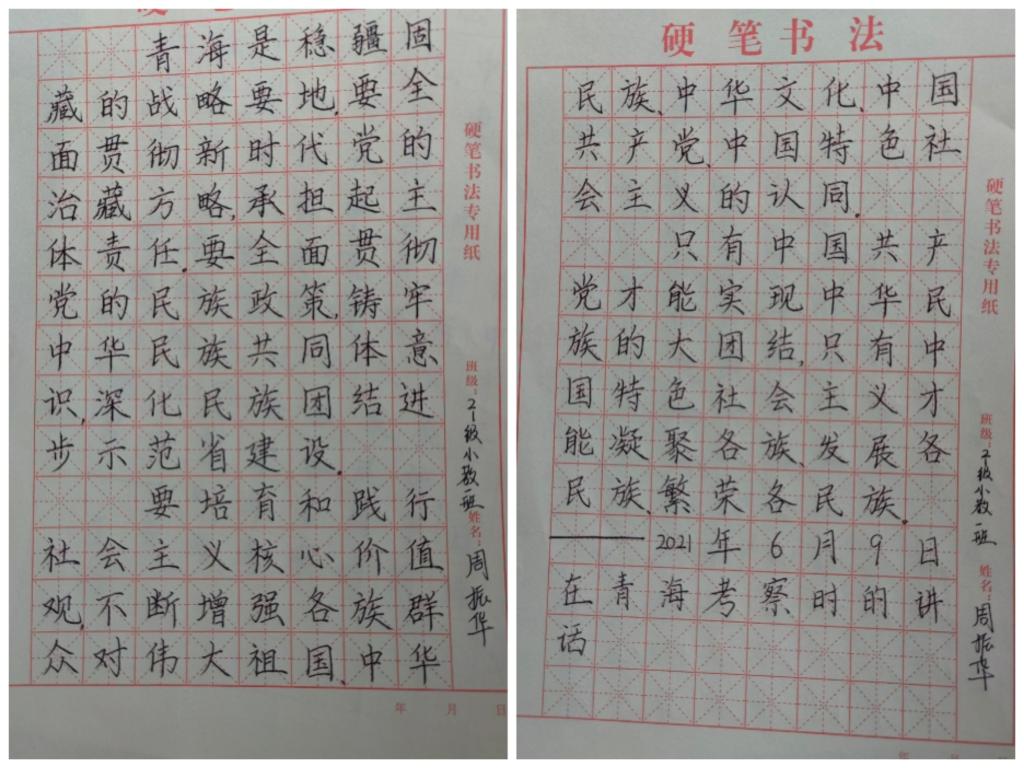 青海是稳疆固
藏的战略要地,要全
面贯彻新时代党的
治藏方略,承担起主
体责任.要全面贯彻
党的民族政策,铸牢
中华民族共同体意
识,深化民族团结进
步示范省建设.
要培育和践行
社会主义核心价值
观,不断增强各族群
众对伟大祖国、中华
硬笔书法专用纸
班级:21级小教一班 姓名:周振华
年 月 日
硬笔书法
民族、中华文化、中国
共产党、中国特色社
会主义的认同.
只有中国共产
党才能实现中华民
族的大团结,只有中
国特色社会主义才
能凝聚各族、发展各
民族、繁荣各民族.
——2021年6月9日
在青海考察时的讲
话
硬笔书法专用纸
班级:21级小教一班 姓名:周振华